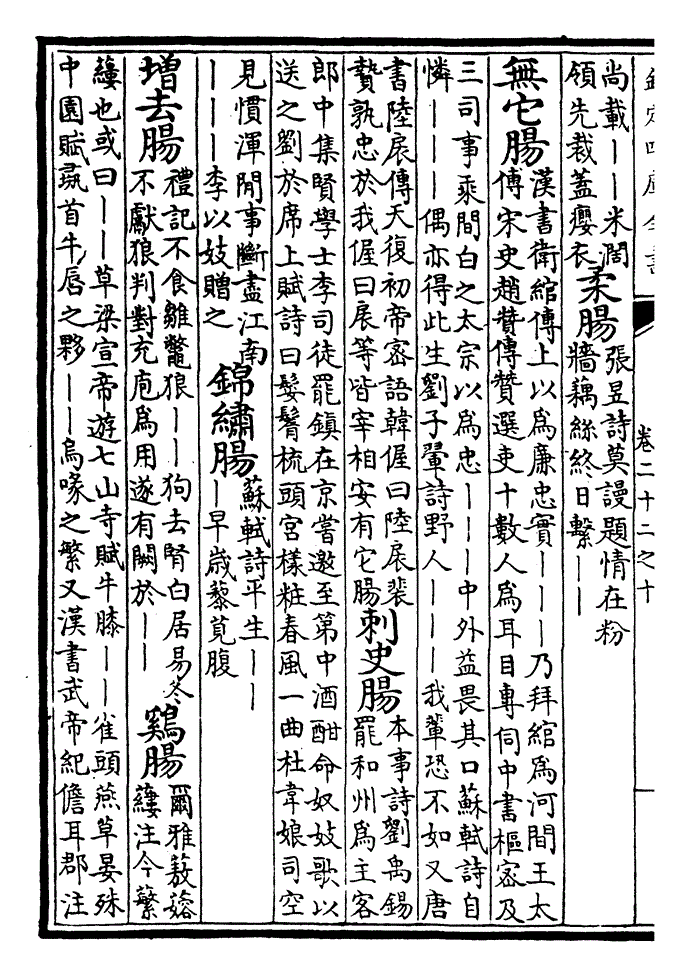 欽定四庫全書
卷二十二之十
尚載——米闊
領先裁蓋癭衣
柔腸
張昱詩莫謾題情在粉
牆藕絲終日繫——
無它腸
漢書衛綰傳上以為廉忠實———乃拜綰為河間王太
傳宋史趙贊傳贊選吏十數人為耳目專伺中書樞密及
三司事乘間白之太宗以為忠———中外益畏其口蘇軾詩自
憐———偶亦得此生劉子翬詩野人———我輩恐不如又唐
書陸扆傳天復初帝密語韓偓曰陸扆裴
贄孰忠於我偓曰扆等皆宰相安有它腸
刺史腸
本事詩劉禹錫
罷和州為主客
郎中集賢學士李司徒罷鎮在京嘗邀至第中酒酣命奴妓歌以
送之劉於席上賦詩曰鬌髻梳頭宮樣粧春風一曲杜韋娘司空
見慣渾閒事斷盡江南
———李以妓贈之
錦繡腸
蘇軾詩平生——
—早歲藜莧腹
增去腸
禮記不食雛鼈狼——狗去腎白居易冬
不獻狼判對充庖為用遂有闕於——
鷄腸
爾雅蔜䕅
蔞注今蘩
蔞也或曰——草梁宣帝遊七山寺賦牛膝——雀頭燕草晏殊
中園賦彘首牛唇之夥——烏喙之繁又漢書武帝紀儋耳郡注